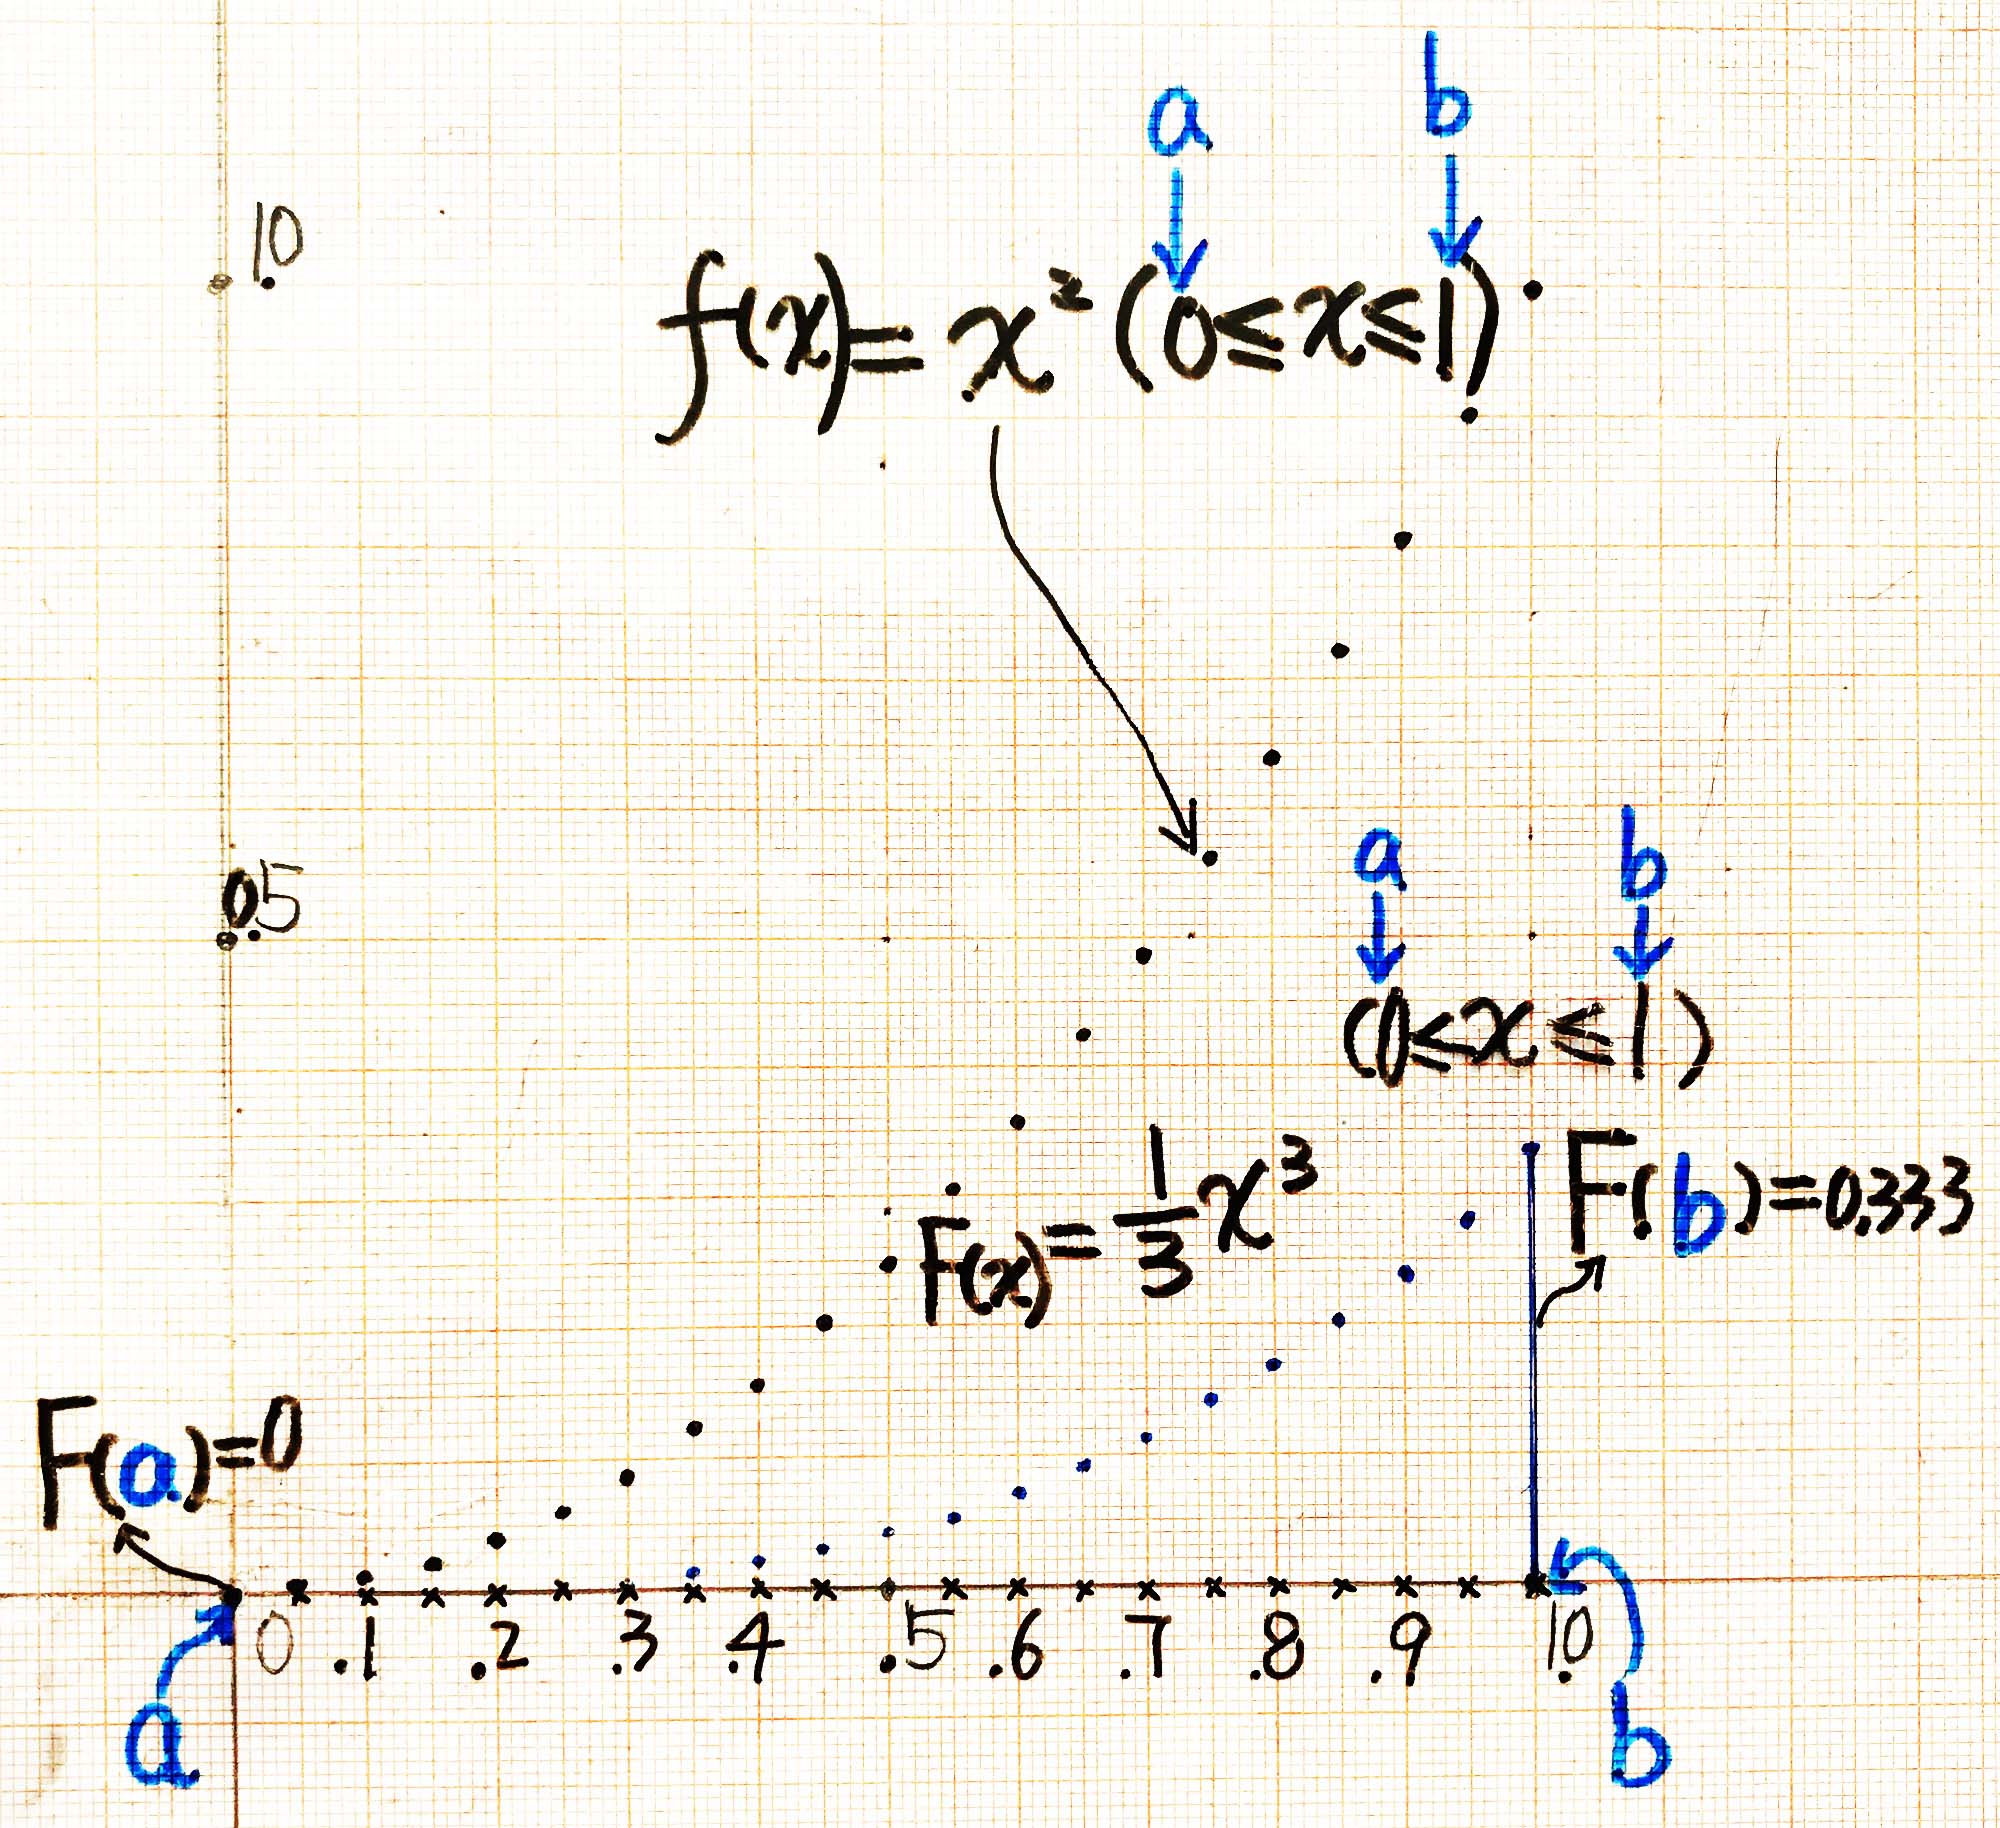 a b
1.0
f(x)=x² (0≦x≦1)
a b
0.5
(0≦x≦1)
F(x)=1/3x³
F(b)=0.333
F(a)=0
0 .1 .2 .3 .4 .5 .6 .7 .8 .9 1.0
a b